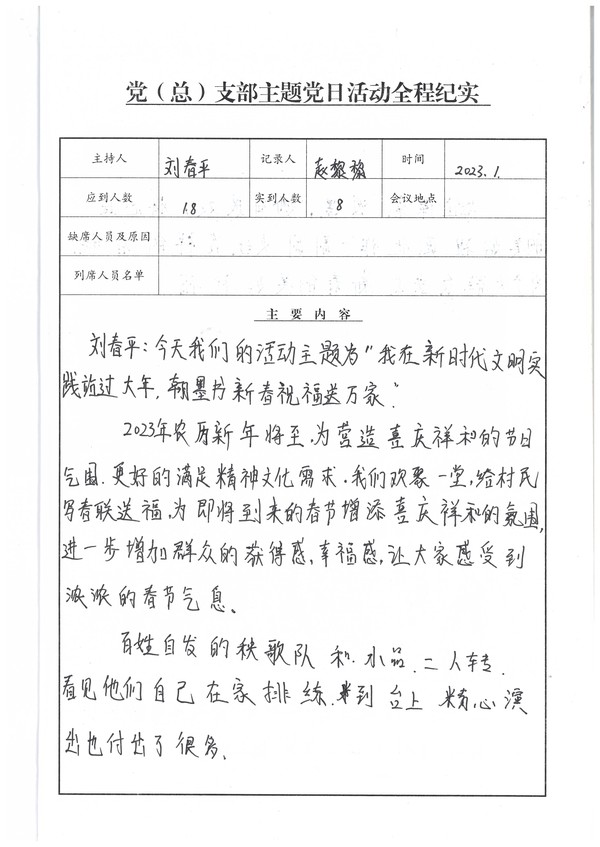 党（总）支部主题党日活动全程纪实
主持人 刘春平 记录人 赵黎黎 时间 2023.1.
应到人数 18 实到人数 8 会议地点
缺席人员及原因
列席人员名单
主要内容
刘春平：今天我们的活动主题为“我在新时代文明实
践站过大年，翰墨书新春祝福送万家”
2023年农历新年将至，为营造喜庆祥和的节日
气围.更好的满足精神文化需求.我们欢聚一堂，给村民
写春联送福，为即将到来的春节增添喜庆祥和的氛围，
进一步增加群众的获得感，幸福感，让大家感受到
浓浓的春节气息。
百姓自发的秧歌队和.小品.二人转.
看见他们自己在家排练.到台上精心演
出也付出了很多.